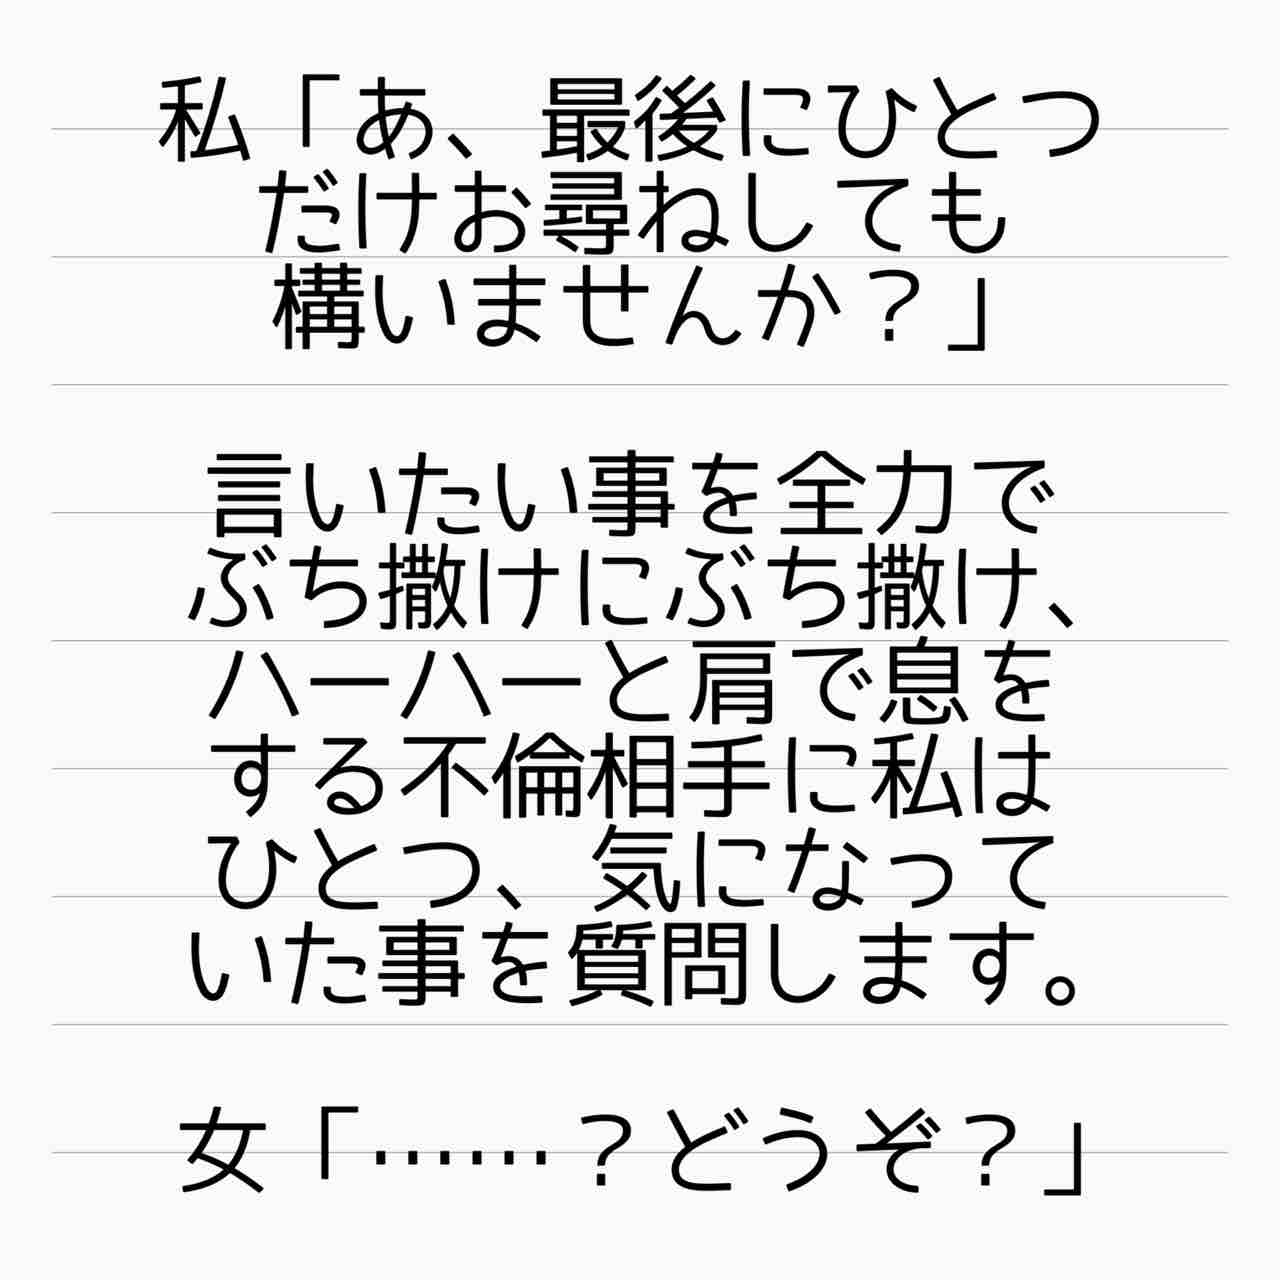 私「あ、最後にひとつ
だけお尋ねしても
構いませんか？」
言いたい事を全力で
ぶち撒けにぶち撒け、
ハーハーと肩で息を
する不倫相手に私は
ひとつ、気になって
いた事を質問します。
女「……？どうぞ？」